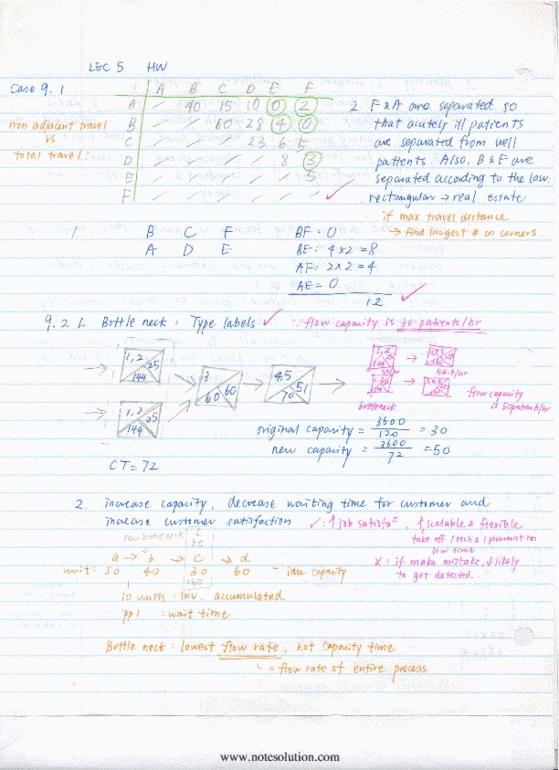 LEC 5 HW
Case 9.1
A B C D E F
A / 40 15 10 0 2
B / / 60 28 4 0
C / / / 23 6 5
D / / / / 8 3
E / / / / / 5
F / / / / / /
non adjacent travel
vs
total travel!
2. F & A are separated so
that acutely ill patients
are separated from well
patients. Also, B & F are
separated according to the law.
rectangular → real estate
if max travel distance
→ find largest # on corners.
1 B C F
A D E
BF = 0
BE = 4 x 2 = 8
AF = 2 x 2 = 4
AE = 0
12 ✓
9.2 1. Bottle neck : Type labels ✓ flow capacity is 30 patients/hr
1, 2 25
144
3 60
60
4,5 51
70
1, 2 25
144
bottleneck
flow capacity
is 50 patients/hr
original capacity = 3600/120 = 30
new capacity = 3600/72 = 50
CT = 72
2. increase capacity, decrease waiting time for customer and
increase customer satisfaction ✓ : ↑ job satisfaⁿ, ↑ scalable & flexible
take off 1 tech & 1 pharmist in
low time
x : if make mistake, ↓ likely
to get detected.
new bottleneck
a → b → c → d
unit : 50 40 30 60 - idle capacity
=60
10 units : inv. accumulated
ppl : wait time
Bottle neck : lowest flow rate, not capacity time
= flow rate of entire process
www.notesolution.com